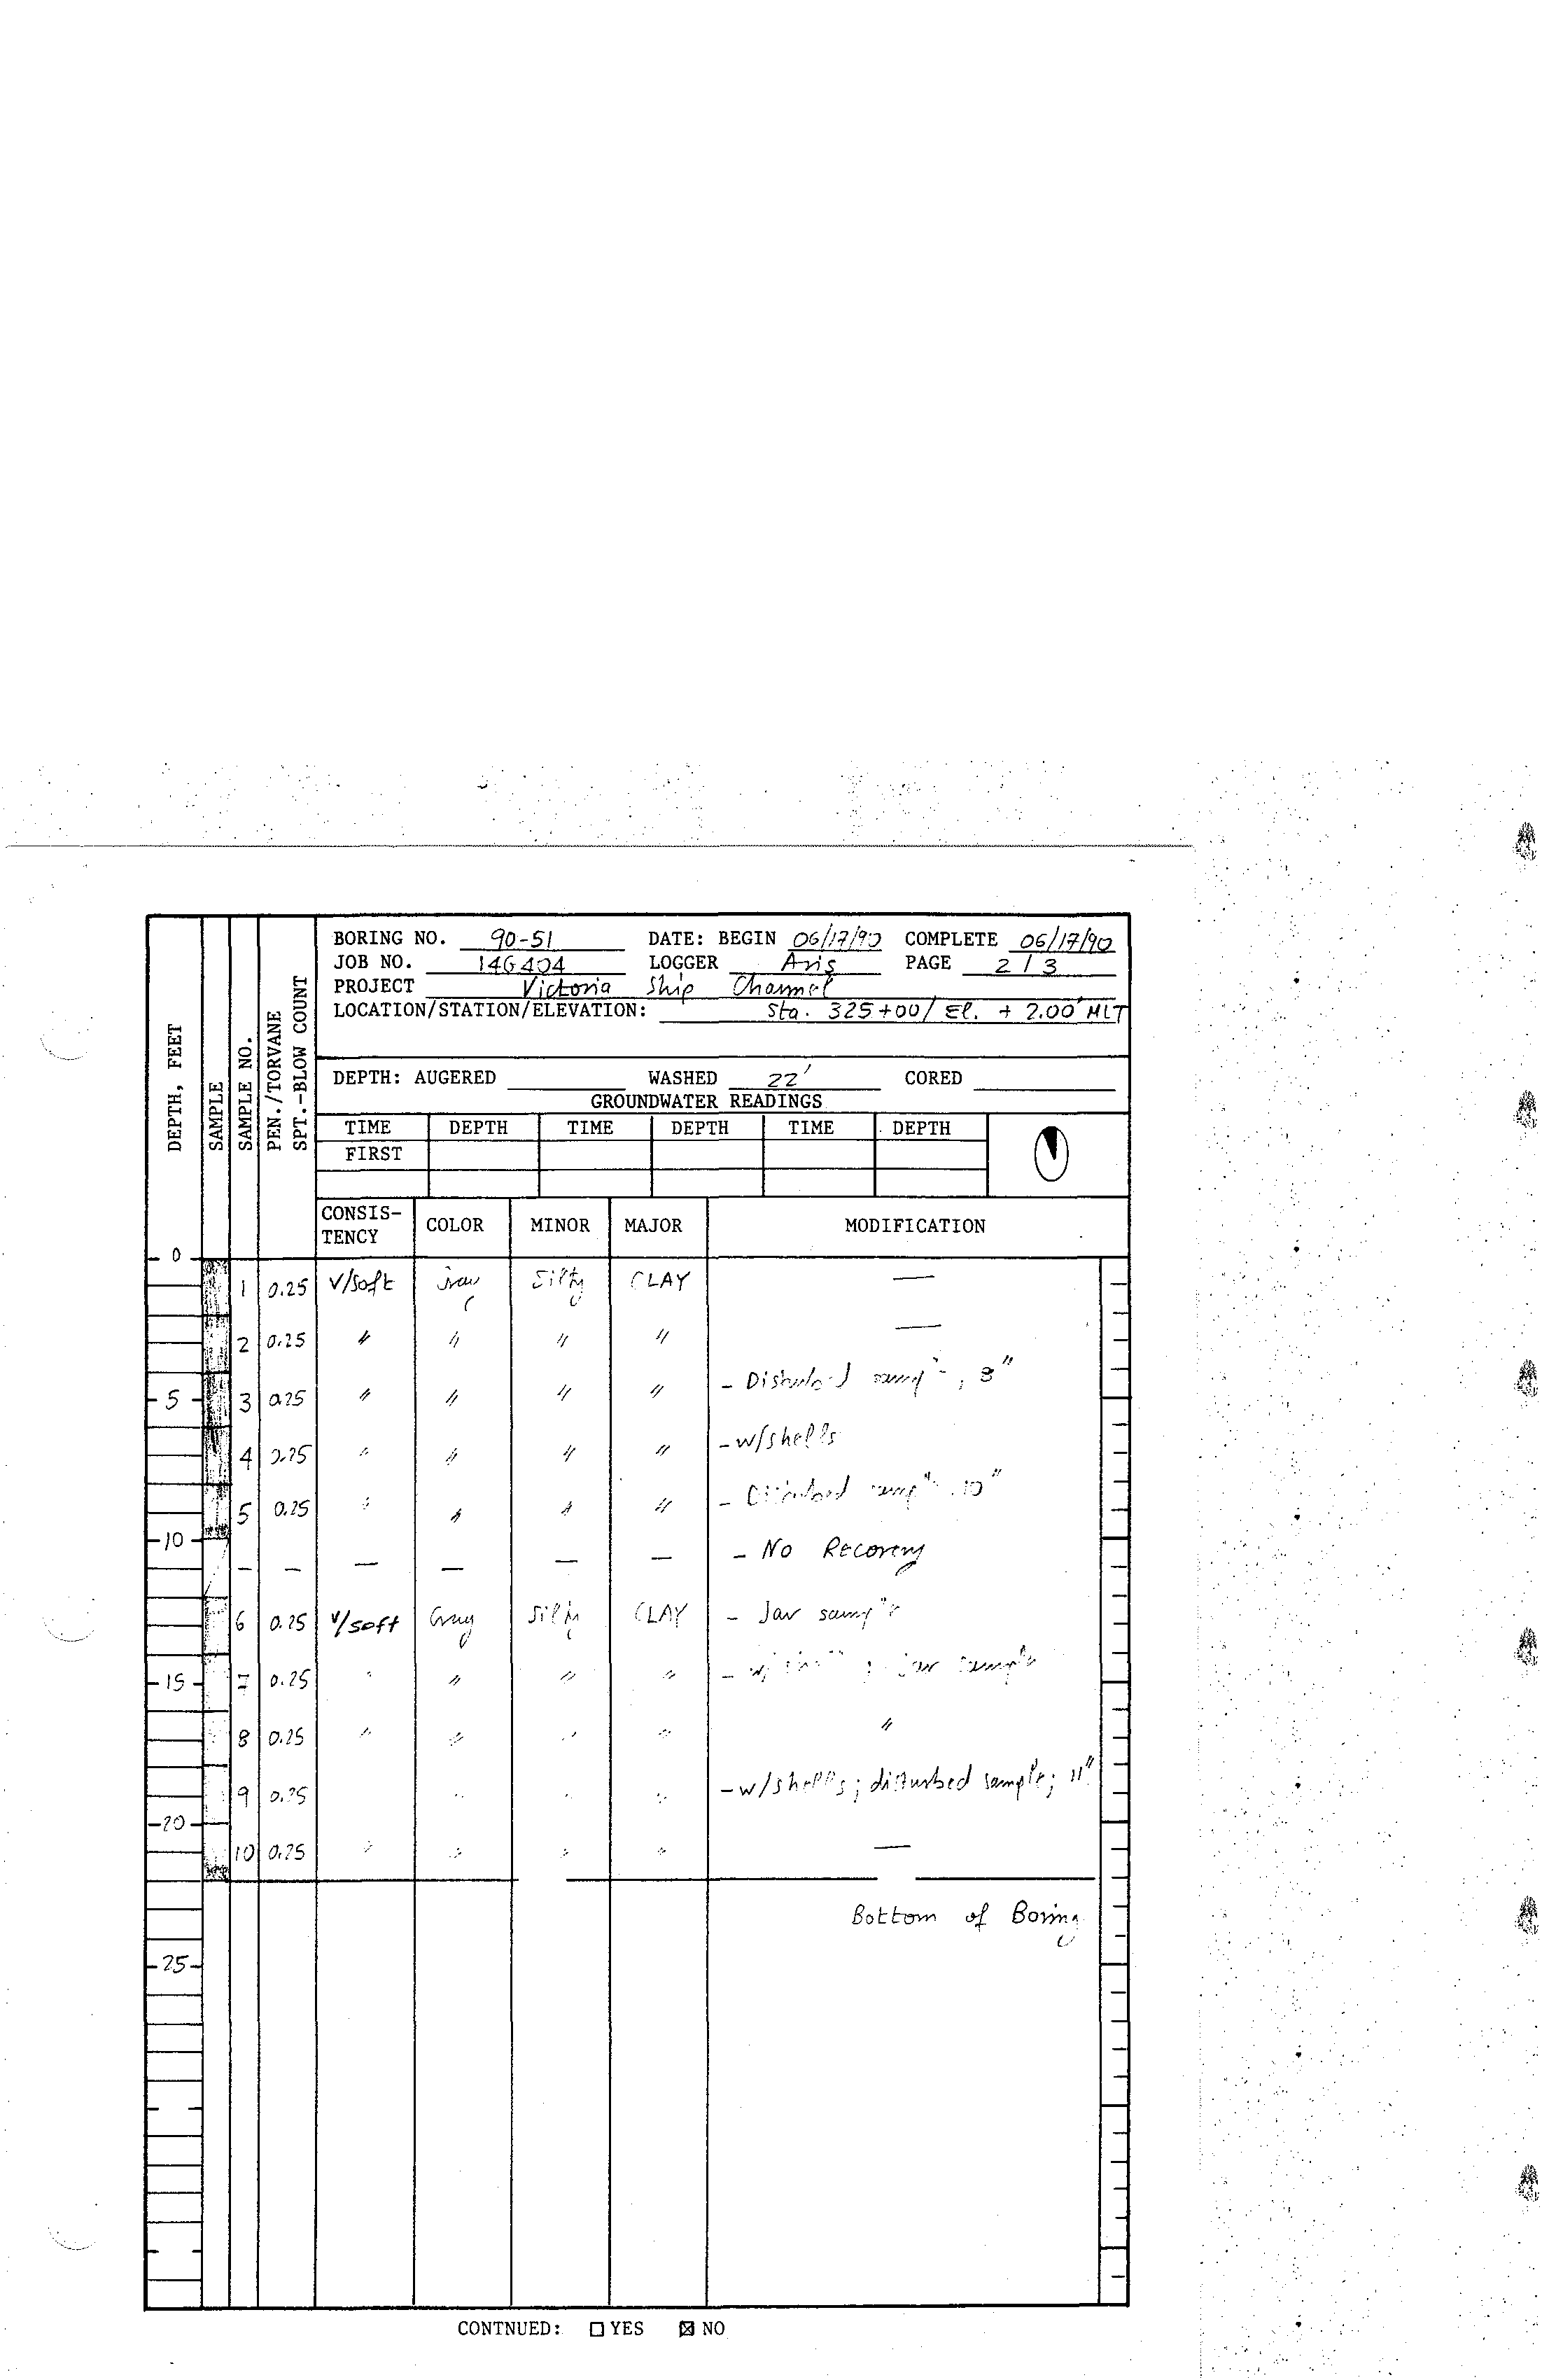 BORING NO. 90-51 DATE: BEGIN 06/17/90 COMPLETE 06/17/90
JOB NO. 146404 LOGGER Aris PAGE 2 / 3
PROJECT Victoria Ship Channel
LOCATION/STATION/ELEVATION: Sta. 325+00/ El. + 2.00' MLT
DEPTH, FEET
SAMPLE
SAMPLE NO.
PEN./TORVANE
SPT.-BLOW COUNT
DEPTH: AUGERED WASHED 22' CORED
GROUNDWATER READINGS
TIME DEPTH TIME DEPTH TIME DEPTH
FIRST
CONSIS-TENCY COLOR MINOR MAJOR MODIFICATION
0
1 0.25 V/Soft Gray Silty CLAY —
2 0.25 " " " " —
5 3 0.25 " " " " - Disturbed sample, 8"
4 0.25 " " " " - w/shells
5 0.25 " " " " - Disturbed sample
10
— — — — — — - No Recovery
6 0.25 V/soft Gray Silty CLAY - Jar sample
15 7 0.25 " " " " - w/ jar sample
8 0.25 " " " " "
9 0.25 " " " - w/shells; disturbed sample; 11"
20
10 0.25 " " " " —
Bottom of Boring
25
CONTNUED: ☐ YES ☒ NO